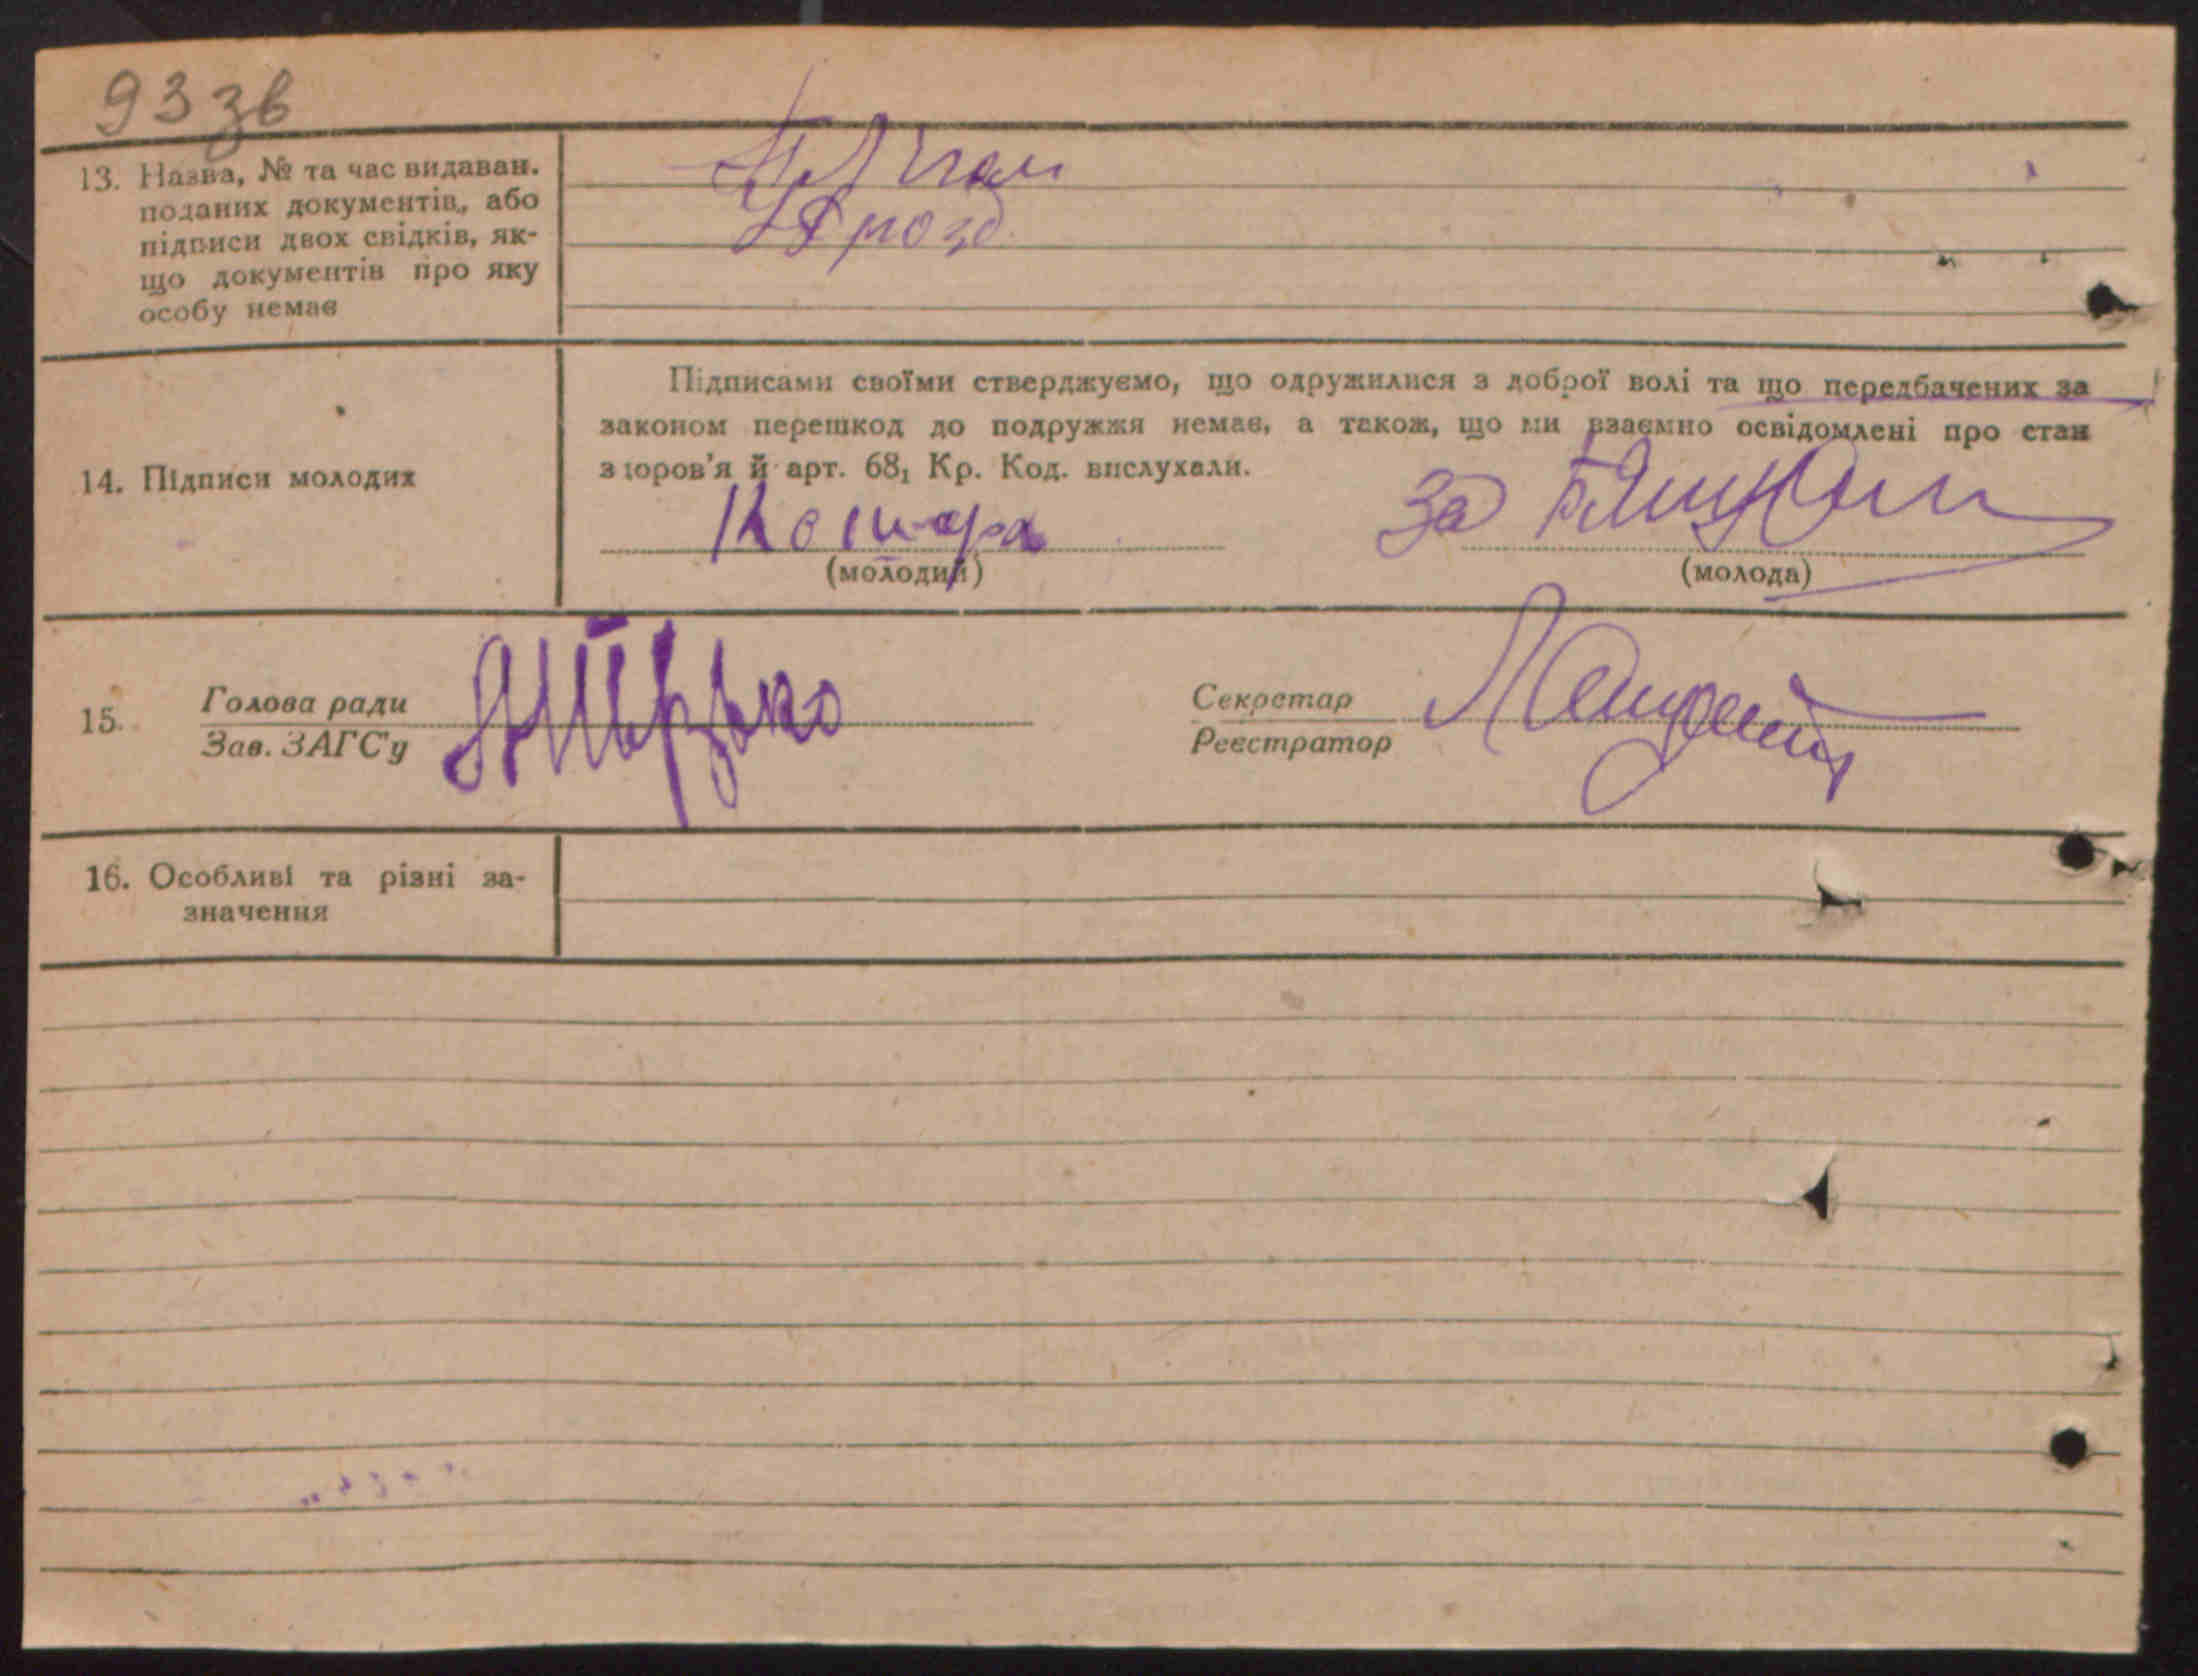 93 зв
13. Назва, № та час видаван.
поданих документів, або
підписи двох свідків, як-
що документів про яку
особу немає
Дрозд
14. Підписи молодих
Підписами своїми стверджуємо, що одружилися з доброї волі та що передбачених за
законом перешкод до подружжя немає, а також, що ми взаємно освідомлені про стан
здоров'я й арт. 68₁ Кр. Код. вислухали.
за
(молодий) (молода)
15. Голова ради Секретар
Зав. ЗАГС'у Реєстратор
16. Особливі та різні за-
значення